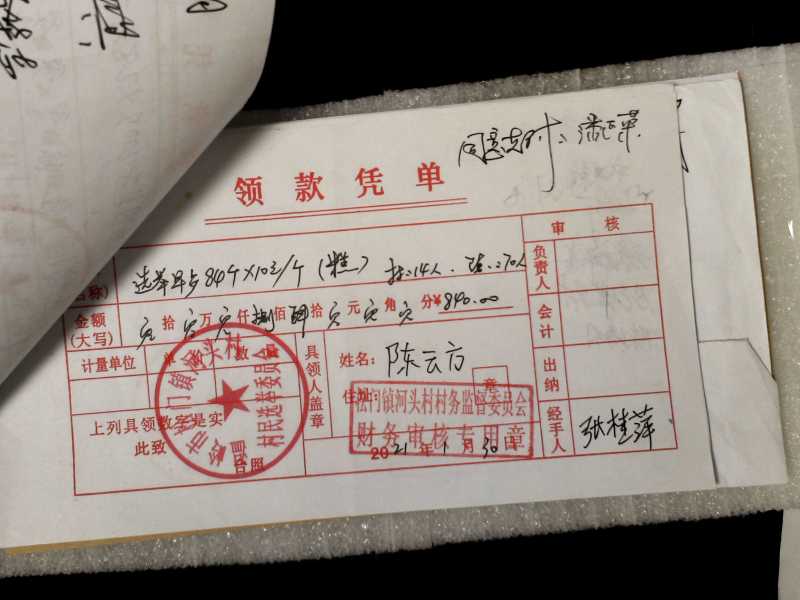 同意支付：潘正萍
领款凭单
审核
选举早点84个×10元/个（糕）
14人. 70人
名称)
负责人
金额(大写) 零拾零万零仟捌佰肆拾零元零角零分¥840.00
会计
计量单位 单 数
具领人盖章
姓名: 陈云方
出纳
住址:
章
上列具领数字是实
此致
台照
2021年1月30日
经手人
张桂萍
岭市松门镇河头村
村民选举委员会
松门镇河头村村务监督委员会
财务审核专用章